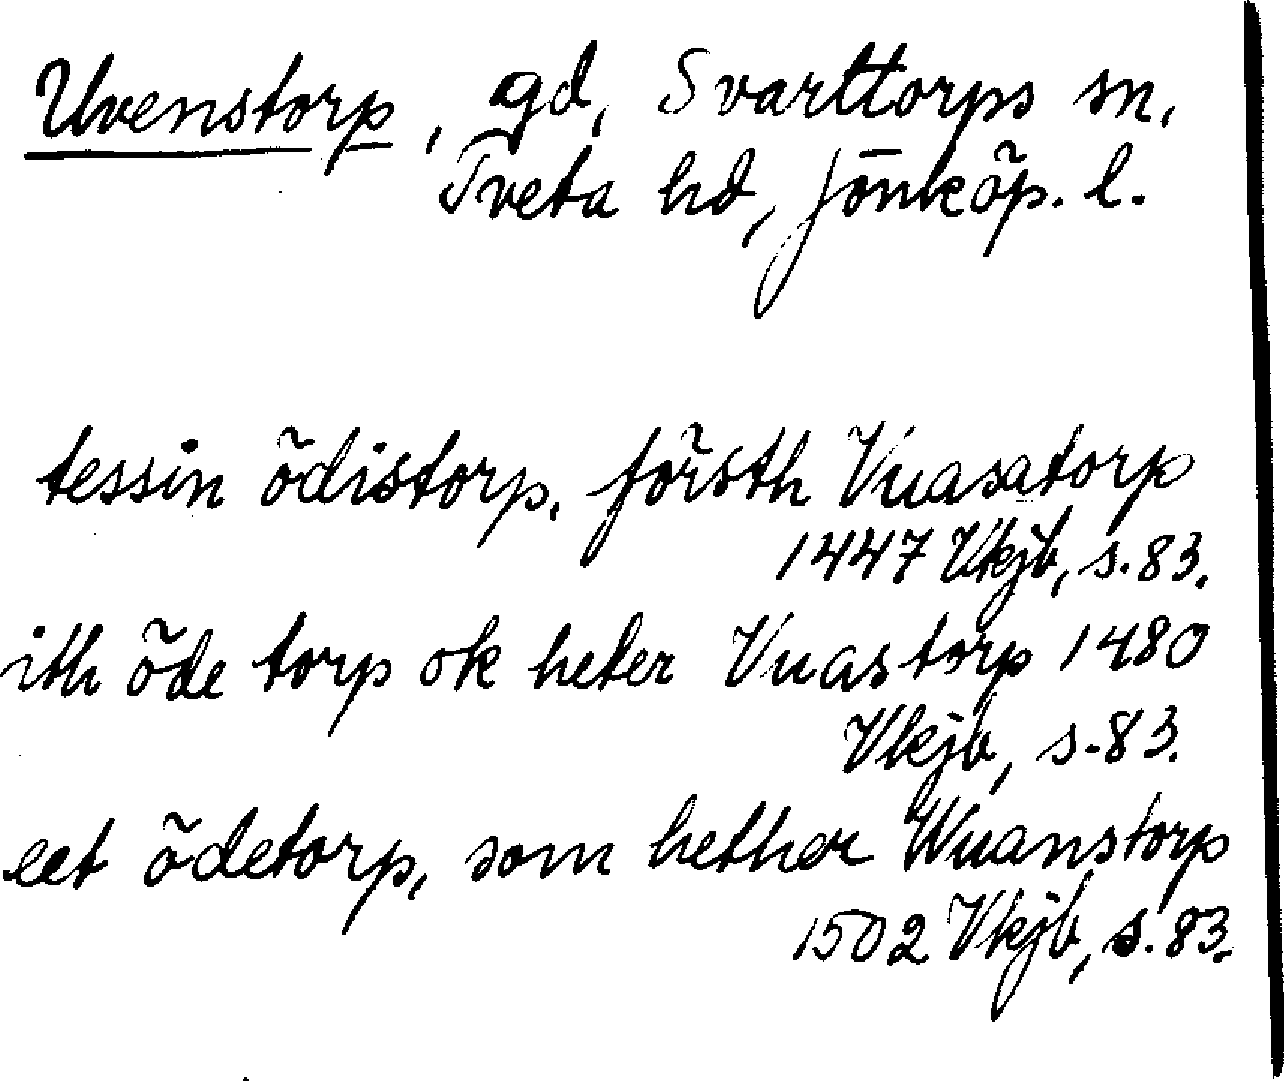 Uvenstorp, gd, Svarttorps sn,
Tveta hd, Jönköp. l.
tessin ödistorp, försth Vuasatorp
1447 Vkjb, s. 83.
ith öde torp ok heter Vuastorp 1480
Vkjb, s. 83.
eet ödetorp, som hether Wuanstorp
1502 Vkjb, s. 83.